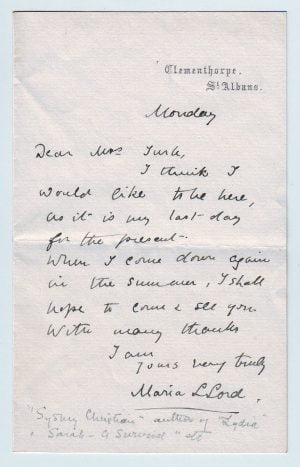 Clementhorpe.
St Albans.
Monday
Dear Mrs Turk,
I think I
would like to be here,
as it is my last day
for the present.
When I come down again
in the summer, I shall
hope to come & see you
With many thanks
I am
yours very truly
Maria L Lord.
"Sydney Christian" author of "Lydia"
"Sarah - A Survival" etc